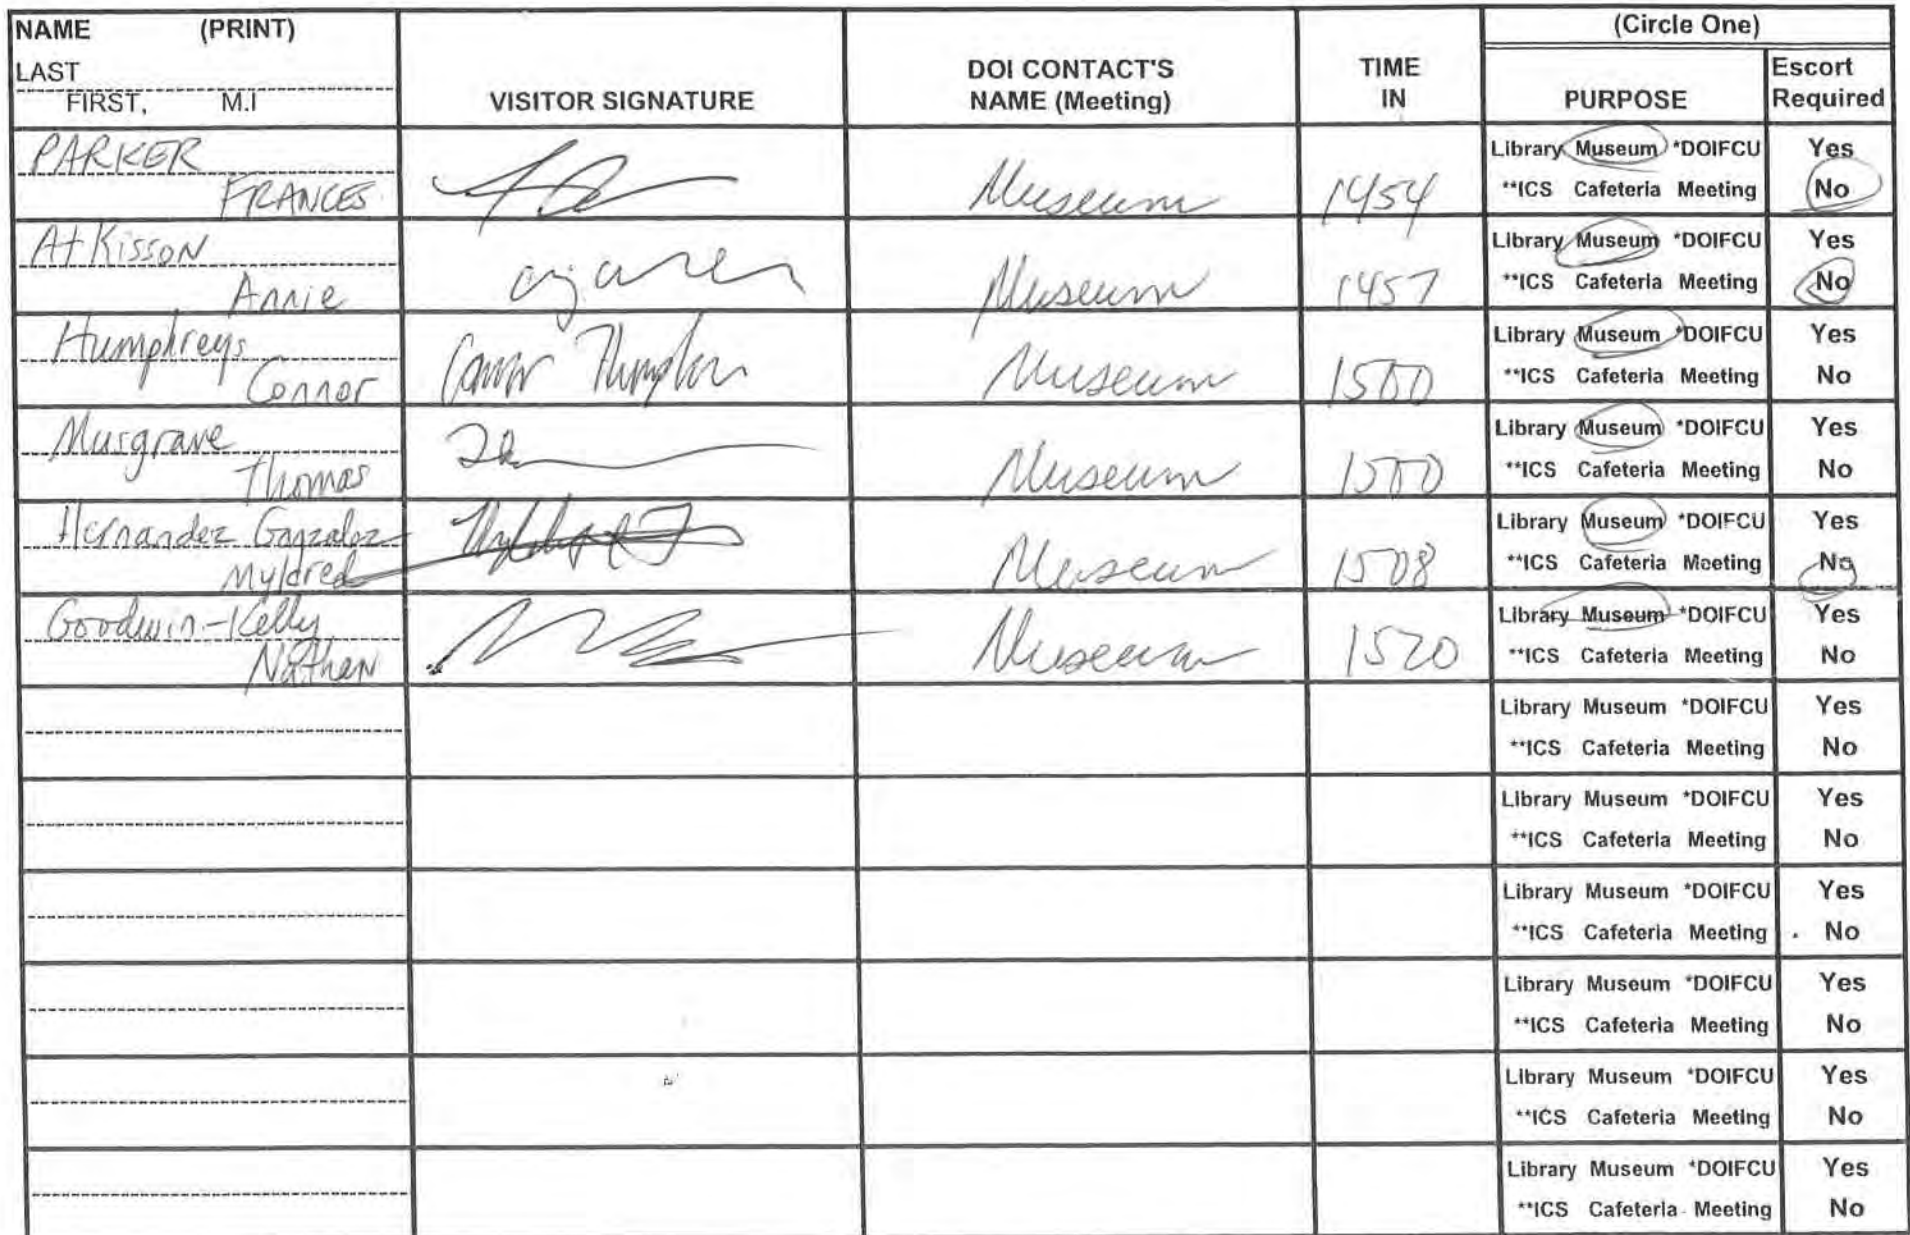 NAME (PRINT)
LAST
FIRST, M.I
VISITOR SIGNATURE
DOI CONTACT'S
NAME (Meeting)
TIME
IN
(Circle One)
PURPOSE
Escort
Required
PARKER
FRANCES
Museum
1454
Library Museum *DOIFCU Yes
**ICS Cafeteria Meeting No
AtKisson
Annie
Museum
1457
Library Museum *DOIFCU Yes
**ICS Cafeteria Meeting No
Humphreys
Connor
Museum
1500
Library Museum *DOIFCU Yes
**ICS Cafeteria Meeting No
Musgrave
Thomas
Museum
1500
Library Museum *DOIFCU Yes
**ICS Cafeteria Meeting No
Hernandez Gonzalez
Myldred
Museum
1508
Library Museum *DOIFCU Yes
**ICS Cafeteria Meeting No
Goodwin-Kelly
Nathan
Museum
1520
Library Museum *DOIFCU Yes
**ICS Cafeteria Meeting No
Library Museum *DOIFCU Yes
**ICS Cafeteria Meeting No
Library Museum *DOIFCU Yes
**ICS Cafeteria Meeting No
Library Museum *DOIFCU Yes
**ICS Cafeteria Meeting No
Library Museum *DOIFCU Yes
**ICS Cafeteria Meeting No
Library Museum *DOIFCU Yes
**ICS Cafeteria Meeting No
Library Museum *DOIFCU Yes
**ICS Cafeteria Meeting No